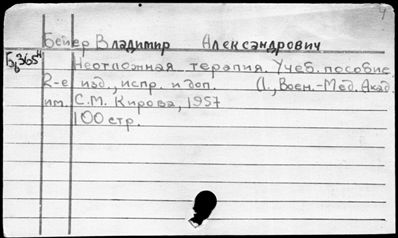 Бейер Владимир Александрович
Б6365ч Неотложная терапия. Учеб. пособие.
2-е изд., испр. и доп. Л., Воен.-Мед. Акад.
им. С.М. Кирова, 1957
100 стр.